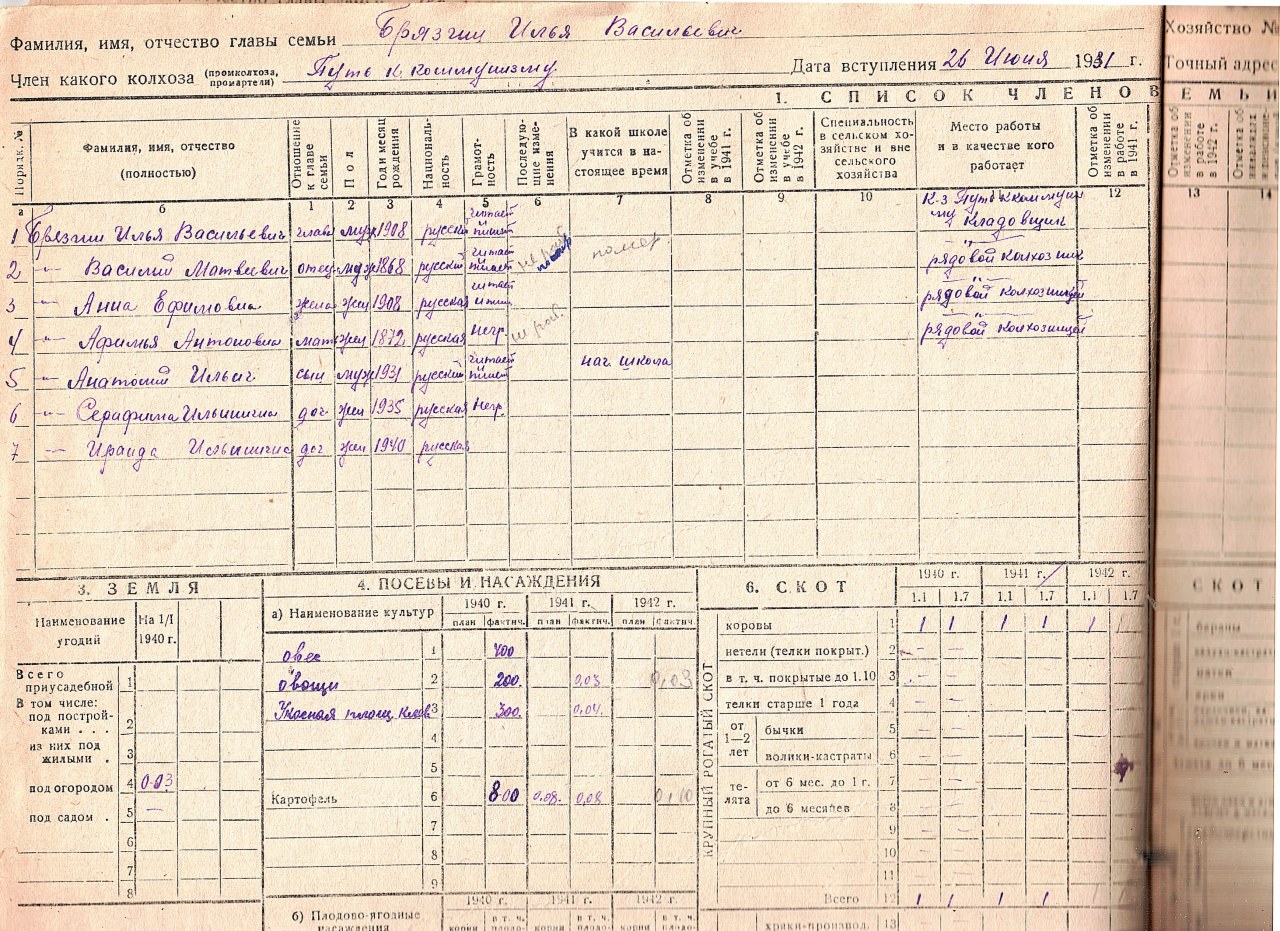 Фамилия, имя, отчество главы семьи Брязгин Илья Васильевич
Член какого колхоза (промколхоза, промартели) Путь к коммунизму. Дата вступления 26 Июня 1931 г.
Хозяйство №
Точный адрес
1. СПИСОК ЧЛЕНОВ СЕМЬИ
Порядк. № | Фамилия, имя, отчество (полностью) | Отношение к главе семьи | Пол | Год и месяц рождения | Националь-ность | Грамот-ность | Последую-щие изме-нения | В какой школе учится в на-стоящее время | Отметка об изменении в учебе в 1941 г. | Отметка об изменении в учебе в 1942 г. | Специальность в сельском хо-зяйстве и вне сельского хозяйства | Место работы и в качестве кого работает | Отметка об изменении в работе в 1941 г. | Отметка об изменении в работе в 1942 г.
а б 1 2 3 4 5 6 7 8 9 10 11 12 13 14
1 Брязгин Илья Васильевич глава муж 1908 русский читает пишет К-з Путь к коммунизму Кладовщик
2 -"- Василий Матвеевич отец муж 1868 русский читает пишет помер -"- рядовой колхозник
3 -"- Анна Ефимовна жена жен 1908 русская читает -"- рядовой колхозницей
4 -"- Афимья Антоновна мать жен 1872 русская негр. -"- рядовой колхозницей
5 -"- Анатолий Ильич сын муж 1931 русский читает пишет нач. школа
6 -"- Серафима Ильинична доч жен 1935 русская негр.
7 -"- Ираида Ильинична доч жен 1940 русская
3. ЗЕМЛЯ
Наименование угодий | На 1/I 1940 г.
Всего приусадебной 1
В том числе:
под построй-ками . . . 2
из них под жилыми . 3
под огородом 4 0-03
под садом . 5 —
6
7
8
4. ПОСЕВЫ И НАСАЖДЕНИЯ
а) Наименование культур | 1940 г. | 1941 г. | 1942 г.
план фактич. план фактич. план фактич.
овес 1 400
овощи 2 200. 0,03 0,03
3 300. 0,04.
4
5
Картофель 6 800 0,08. 0,08 0,10
7
8
9
1940 г. 1941 г. 1942 г.
б) Плодово-ягодные насаждения
корни в т. ч. плодо- корни в т. ч. плодо- корни в т. ч. плодо-
6. СКОТ
1940 г. 1941 г. 1942 г.
1.1 1.7 1.1 1.7 1.1 1.7
КРУПНЫЙ РОГАТЫЙ СКОТ
коровы 1 1 1 1 1 1 1
нетели (телки покрыт.) 2 – –
в т. ч. покрытые до 1.10 3 – –
телки старше 1 года 4 – –
от 1—2 лет
бычки 5 – –
волики-кастраты 6 – –
те-лята
от 6 мес. до 1 г. 7 – –
до 6 месяцев 8 – –
9 – –
10 – –
11 – –
Всего 12 1 1 1 1
хряки-производ. 13
СКОТ
бараны